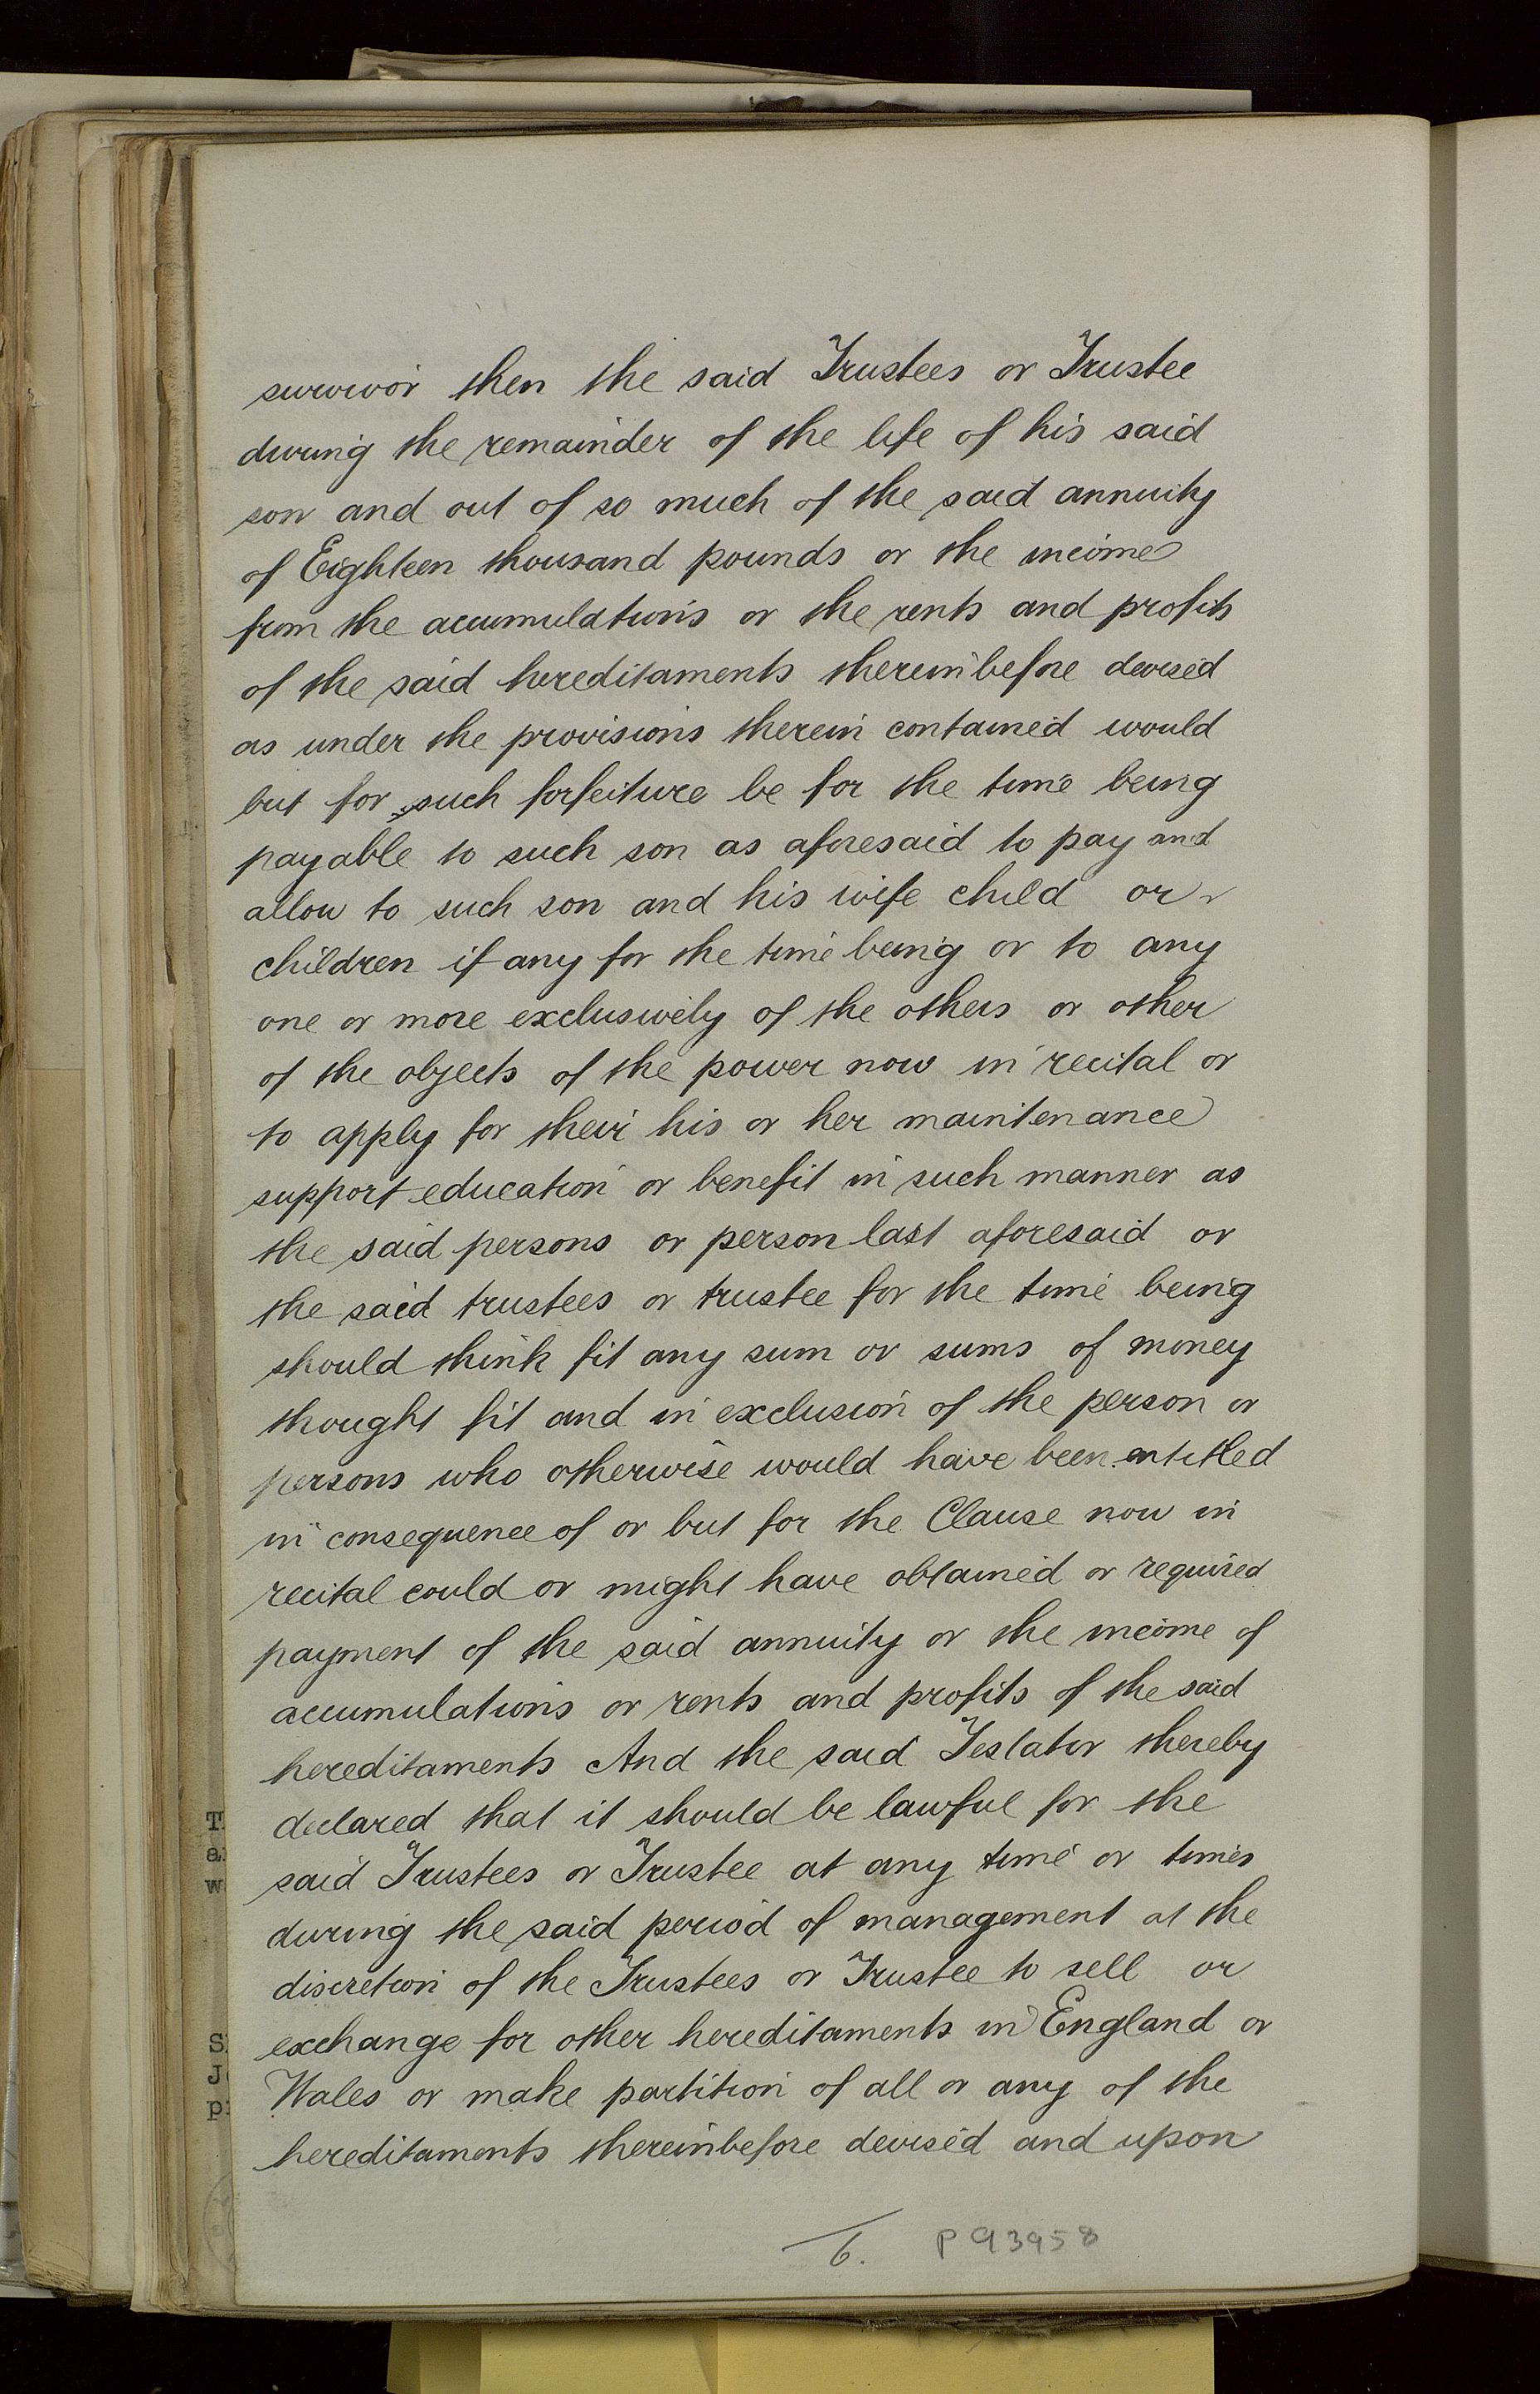 survivor then the said Trustees or Trustee
during the remainder of the life of his said
son and out of so much of the said annuity
of Eighteen thousand pounds or the income
from the accumulations or the rents and profits
of the said hereditaments thereinbefore devised
as under the provisions therein contained would
but for such forfeiture be for the time being
payable to such son as aforesaid to pay and
allow to such son and his wife child or
children if any for the time being or to any
one or more exclusively of the others or other
of the objects of the power now in recital or
to apply for their his or her maintenance
support education or benefit in such manner as
the said persons or person last aforesaid or
the said trustees or trustee for the time being
should think fit any sum or sums of money
thought fit and in exclusion of the person or
persons who otherwise would have been entitled
in consequence of or but for the Clause now in
recital could or might have obtained or required
payment of the said annuity or the income of
accumulations or rents and profits of the said
hereditaments And the said Testator thereby
declared that it should be lawful for the
said Trustees or Trustee at any time or times
during the said period of management at the
discretion of the Trustees or Trustee to sell or
exchange for other hereditaments in England or
Wales or make partition of all or any of the
hereditaments thereinbefore devised and upon
6. P93958